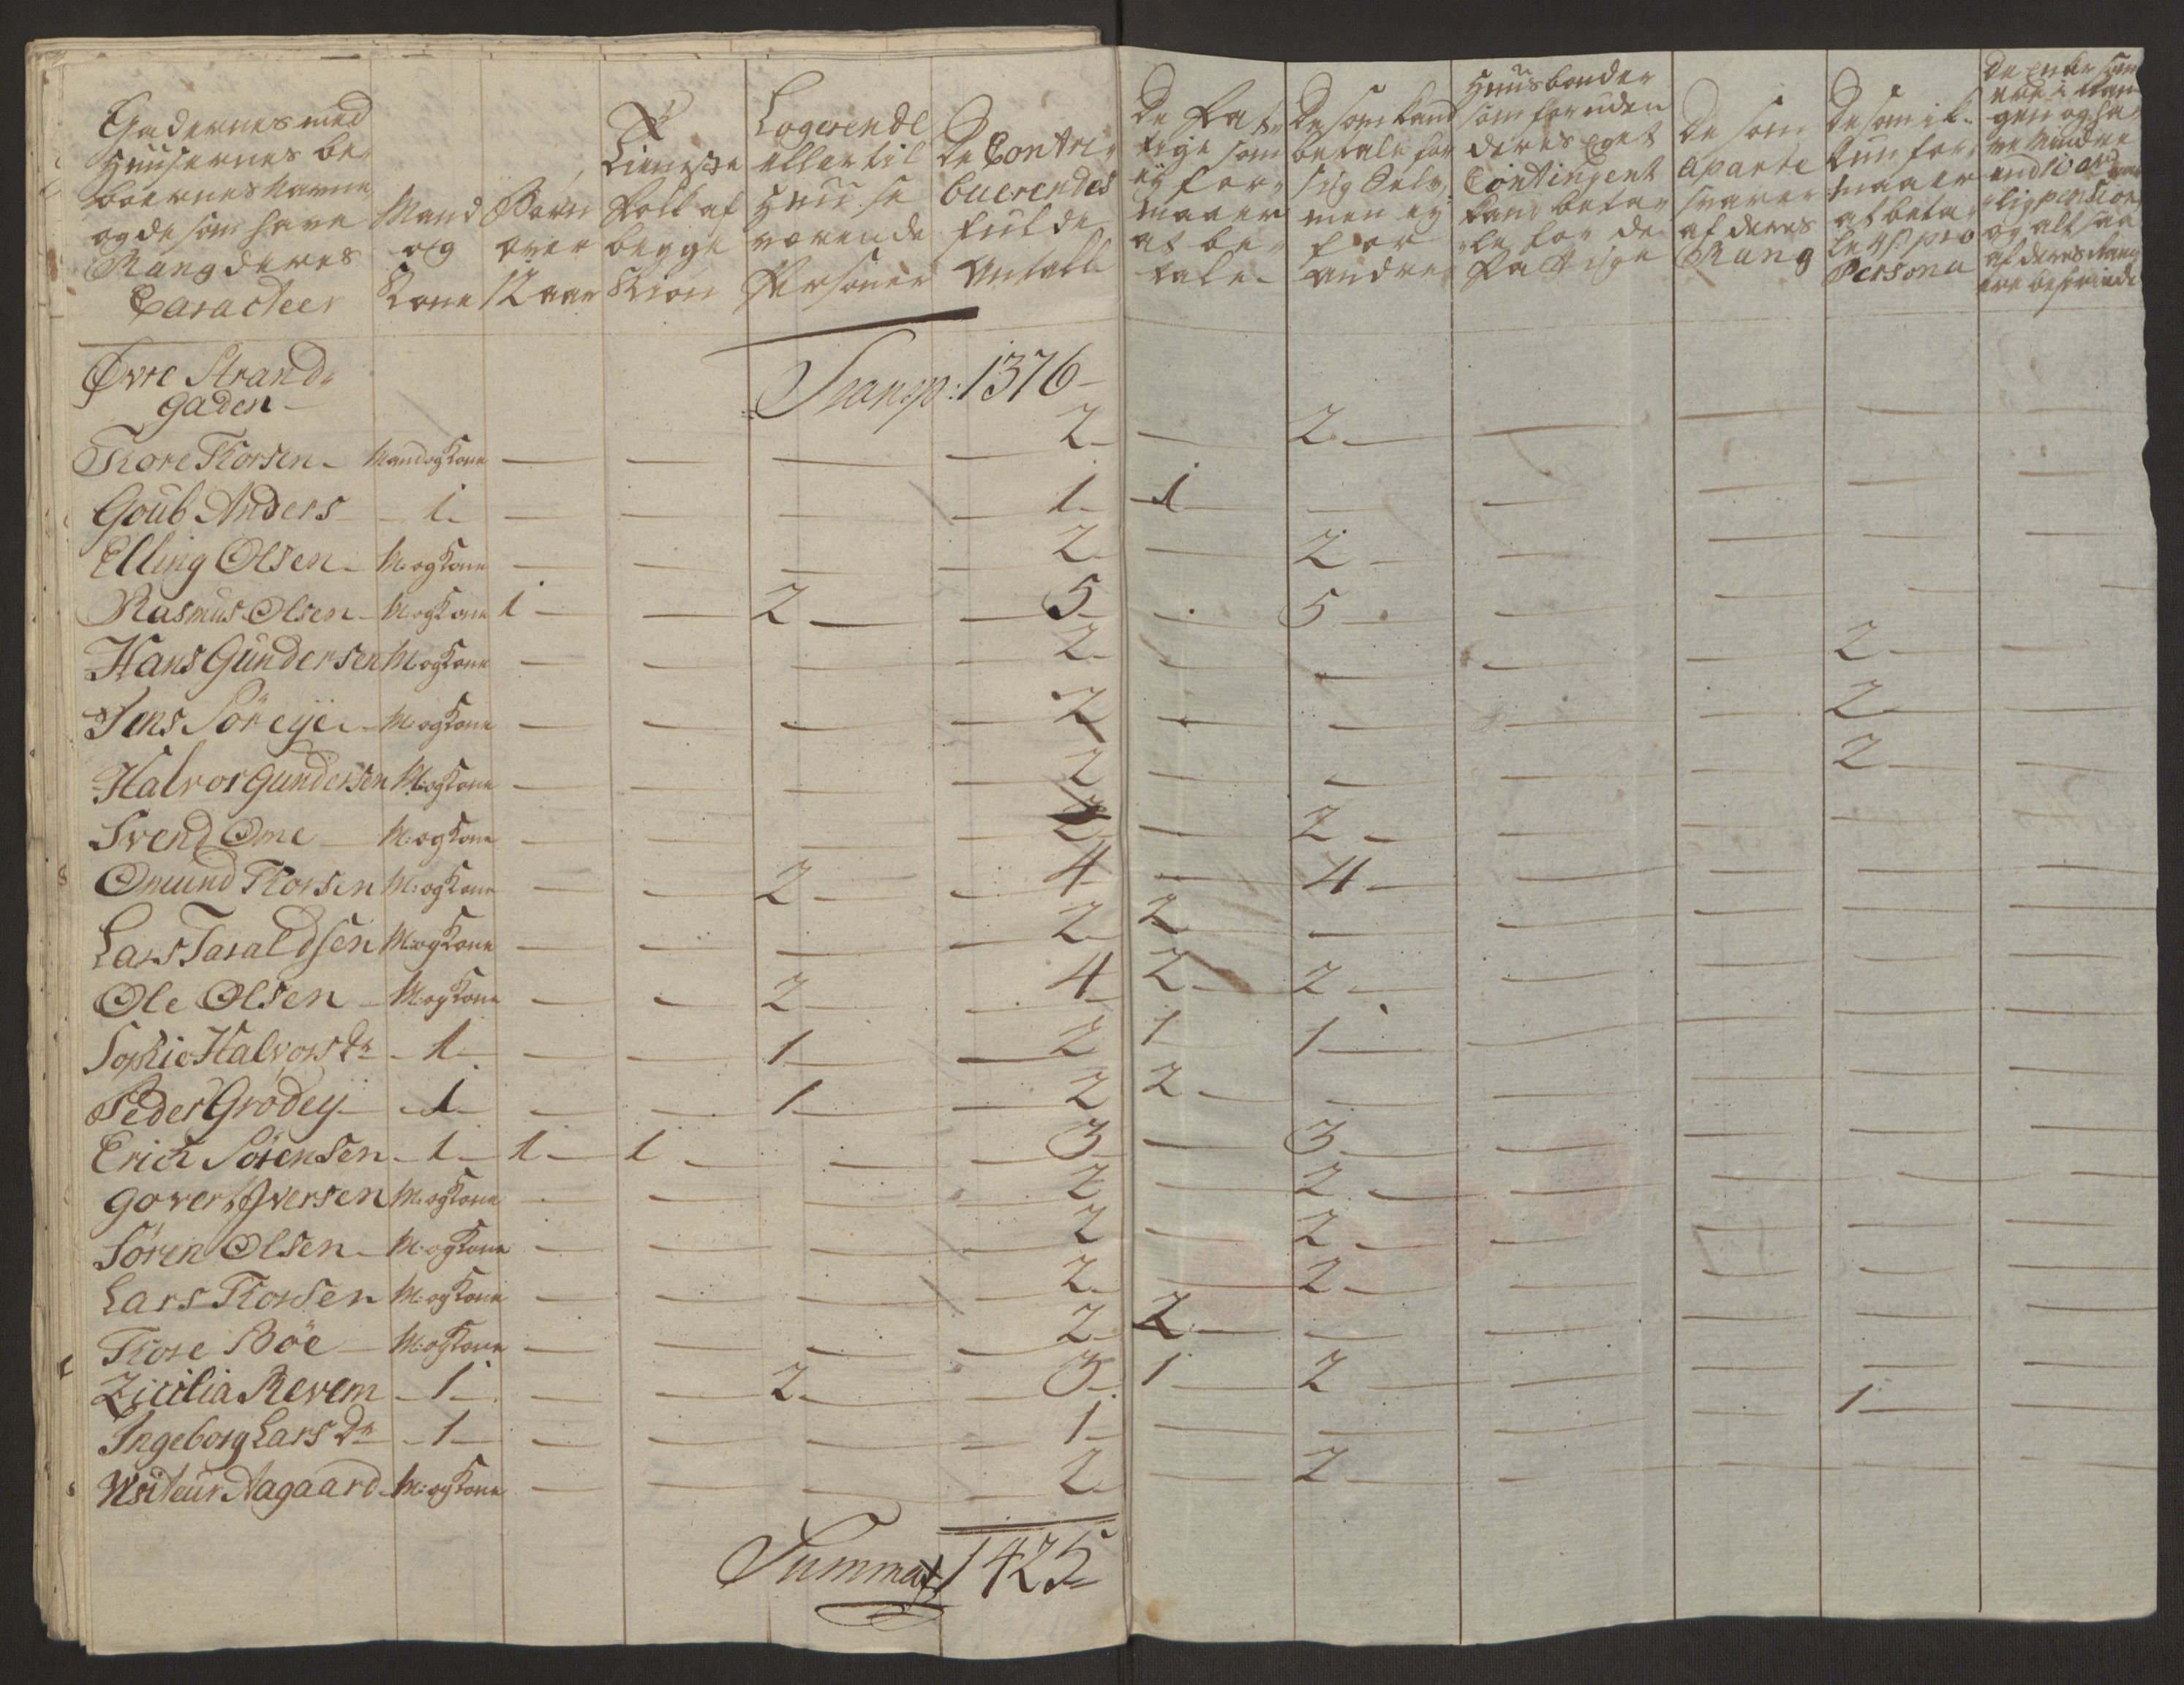 Gadernes med
Huusernes be-
boernes Navne
og de som have
Rang deres
Caracteer
Mand
og
Kone
Børn
over
12 aar
Tieneste
Folk af
begge
Kiøn
Logerende
eller til
Huuse
værende
Personer
De Contri-
buerendes
fulde
Antall
De Fat-
tige som
ej for-
maaer
at be-
tale
De som kand
betale for
sig Selv,
men ej
for
andre
Huusbonder
som foruden
deres Eget
Contingent
kand beta-
le for de
Fattige
De som
aparte
svarer
af deres
Rang
De som ik-
kun for-
maaer
at beta-
le 4 ß pro
Persona
Øvre Strand-
gaden
Transp: 1376
Thore Thorsen Mand og Kone — — — 2 — 2 — — — —
Goub Anders 1 — — — 1 1 — — — — —
Elling Olsen M: og Kone — — — 2 — 2 — — — —
Rasmus Olsen M: og Kone 1 — 2 — 5 — 5 — — — —
Hans Gundersen M: og Kone — — — 2 — — — — 2 —
Jens Söreye M: og Kone — — — 2 — — — — 2 —
Halvor Gundersen M: og Kone — — — 2 — — — — 2 —
Svend Ome M: og Kone — — — 2 — 2 — — — —
Omund Thorsen M: og Kone — — 2 — 4 — 4 — — — —
Lars Taraldsen M: og Kone — — — 2 2 — — — — —
Ole Olsen M: og Kone — — 2 — 4 2 2 — — — —
Sophie Halvors Dr 1 — — 1 — 2 1 1 — — — —
Peder Grodey 1 — — 1 — 2 2 — — — — —
Erich Sörensen 1 1 1 — 3 — 3 — — — —
Govert Iversen M: og Kone — — — 2 — 2 — — — —
Sören Olsen M: og Kone — — — 2 — 2 — — — —
Lars Thorsen M: og Kone — — — 2 — 2 — — — —
Thore Böe M: og Kone — — — 2 2 — — — — —
Zicilia Revem 1 — — 2 — 3 1 2 — — — —
Ingeborg Lars Dr 1 — — — 1 — — — — 1 —
Visiteur Aagaard M: og Kone — — — 2 — 2 — — — —
Summa 1425